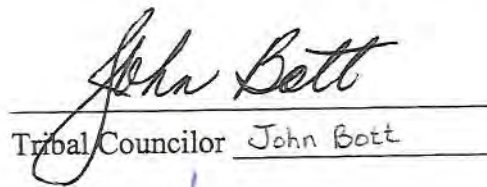 John Bott
Tribal Councilor John Bott